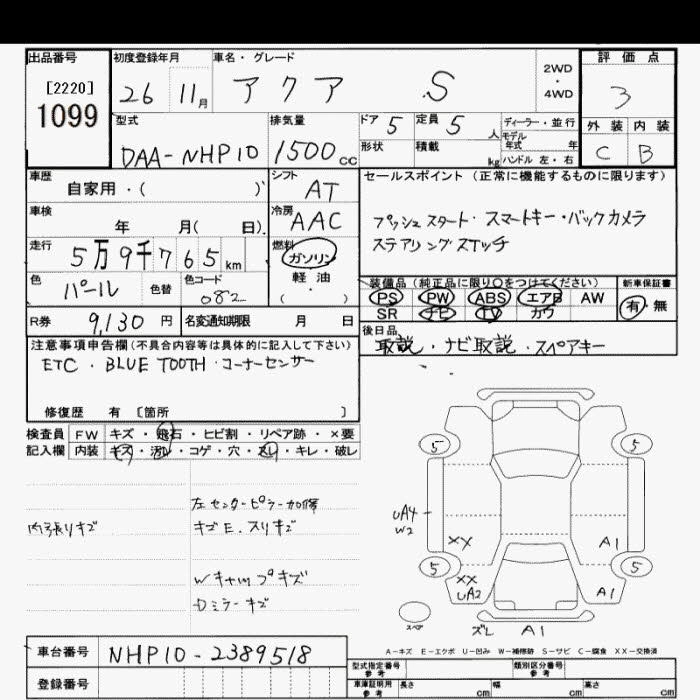 出品番号 初度登録年月 車名・グレード 評価点
[2220] 26 11月 アクア S 2WD・4WD 3
1099
型式 排気量 ドア 5 定員 5人 ディーラー・並行 外装 内装
DAA-NHP10 1500cc 形状 積載 kg モデル年式 年 C B
ハンドル 左・右
車歴 シフト セールスポイント(正常に機能するものに限ります)
自家用・( ) AT
車検 冷房 プッシュスタート・スマートキー・バックカメラ
年 月( 日) AAC ステアリングスイッチ
走行 燃料
5万9千765km ガソリン
色 色替 色コード 軽油 装備品(純正品に限り○をつけてください) 新車保証書
パール 082 ・( ) PS PW ABS エアB AW 有・無
R券 9,130円 名変通知期限 月 日 SR ナビ TV カワ
注意事項申告欄(不具合内容等は具体的に記入して下さい) 後日品
ETC・BLUE TOOTH・コーナーセンサー 取説・ナビ取説・スペアキー
修復歴 有 [箇所 ]
検査員 FW キズ・飛石・ヒビ割・リペア跡・×要
記入欄 内装 キズ・汚レ・コゲ・穴・スレ・キレ・破レ
5 5
左センターピラー加修
内張りキズ キズE.スリキズ
UA4
W2
XX A1
5 5
Wキャップキズ XX
UA2 A1
Dミラーキズ
スペア ズレ A1
A-キズ E-エクボ U-凹み W-補修跡 S-サビ C-腐食 XX-交換済
車台番号 NHP10-2389518
型式指定番号 参考 類別区分番号 参考
登録番号 車庫証明用 参考 長さ cm 幅 cm 高さ cm